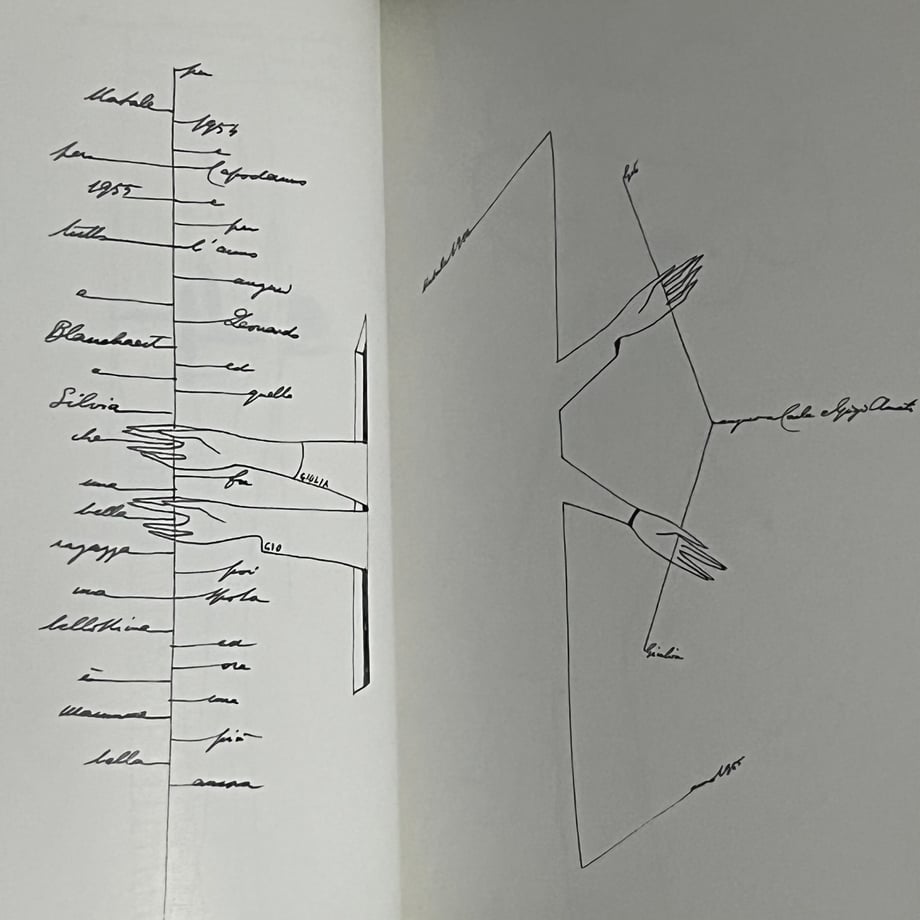 per
Natale
1954
e
per
Capodanno
1955
e
per
tutto
l'anno
auguri
a
Leonardo
Blanchaert
ed
a
quella
Silvia
che
fu
GIULIA
una
bella
GIO
ragazza
poi
una
Sposa
bellissima
ed
ora
è
una
mamma
più
bella
ancora
Gio
natale 1954
auguri a Carla e Gigi
Giulia
anno 1955